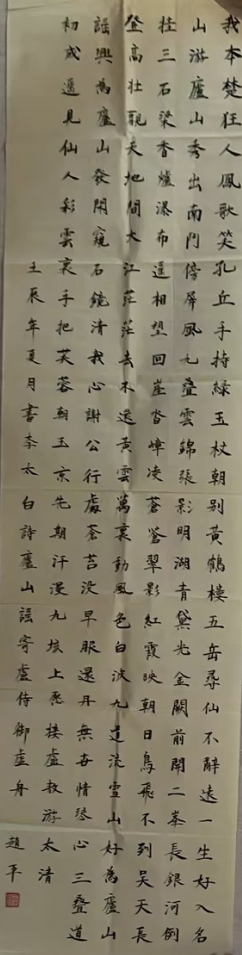 我本楚狂人鳳歌笑孔丘手持緑玉杖朝別黃鶴樓五岳尋仙不辭遠一生好入名
山游廬山秀出南門傍屏風九叠雲錦張影明湖青黛光金闕前開二峯長銀河倒
挂三石梁香爐瀑布遥相望回崖沓嶂凌蒼蒼翠影紅霞映朝日鳥飛不到吴天長
登高壯觀天地間大江茫茫去不還黃雲萬裏動風色白波九道流雪山好為廬山
謡興為廬山發閑窺石鏡清我心謝公行處蒼苔没早服還丹無世情琴心三叠道
初成遥見仙人彩雲裏手把芙蓉朝玉京先期汗漫九垓上愿接盧敖游太清
壬辰年夏月書李太白詩廬山謡寄盧侍御虚舟 趙平